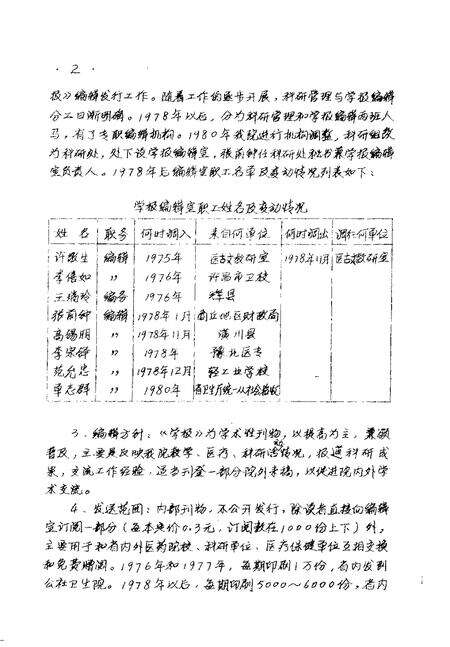 · 2 ·
报》编辑发行工作。随着工作的逐步开展，科研管理与学报编辑
分工日渐明确。1978年以后，分为科研管理和学报编辑两班人
马，有了专职编辑机构。1980年我院进行机构调整，科研组改
为科研处，处下设学报编辑室，张前钟任科研处秘书兼学报编辑
室负责人。1978年后编辑室职工名单及变动情况列表如下：
学报编辑室职工姓名及变动情况
姓 名 职务 何时调入 来自何单位 何时调出 调往何单位
许敬生 编辑 1975年 医古文教研室 1978年1月 医古文教研室
李倍如 〃 1976年 许昌市卫校
王瑞玲 编务 1976年 辉县
张前钟 编辑 1978年1月 商丘地区财政局
高锡朋 〃 1978年11月 潢川县
李宋铎 〃 1978年 豫北医专
范允忠 〃 1978年12月 轻工业学校
单志群 〃 1980年 省卫生厅统一从社会招收
3、编辑方针：《学报》为学术性刊物，以提高为主，兼顾
普及，主要是反映我院教学、医疗、科研活动情况，报道科研成
果，交流工作经验，适当刊登一部分院外来稿，以促进院内外学
术交流。
4、发送范围：内部刊物，不公开发行，除读者直接向编辑
室订阅一部分（每本定价0.3元，订阅数在1000份上下）外，
主要用于和省内外医药院校、科研单位、医疗保健单位互相交换
和免费赠阅。1976年和1977年，每期印刷1万份，省内发到
公社卫生院。1978年以后，每期印刷5000～6000份，省内